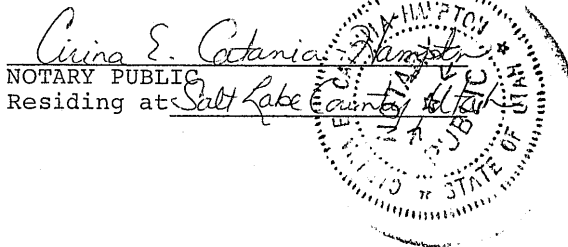 Cirina E. Catania-Hampton
NOTARY PUBLIC
Residing at Salt Lake County Utah
CATANIA-HAMPTON
NOTARY
PUBLIC
STATE OF UTAH